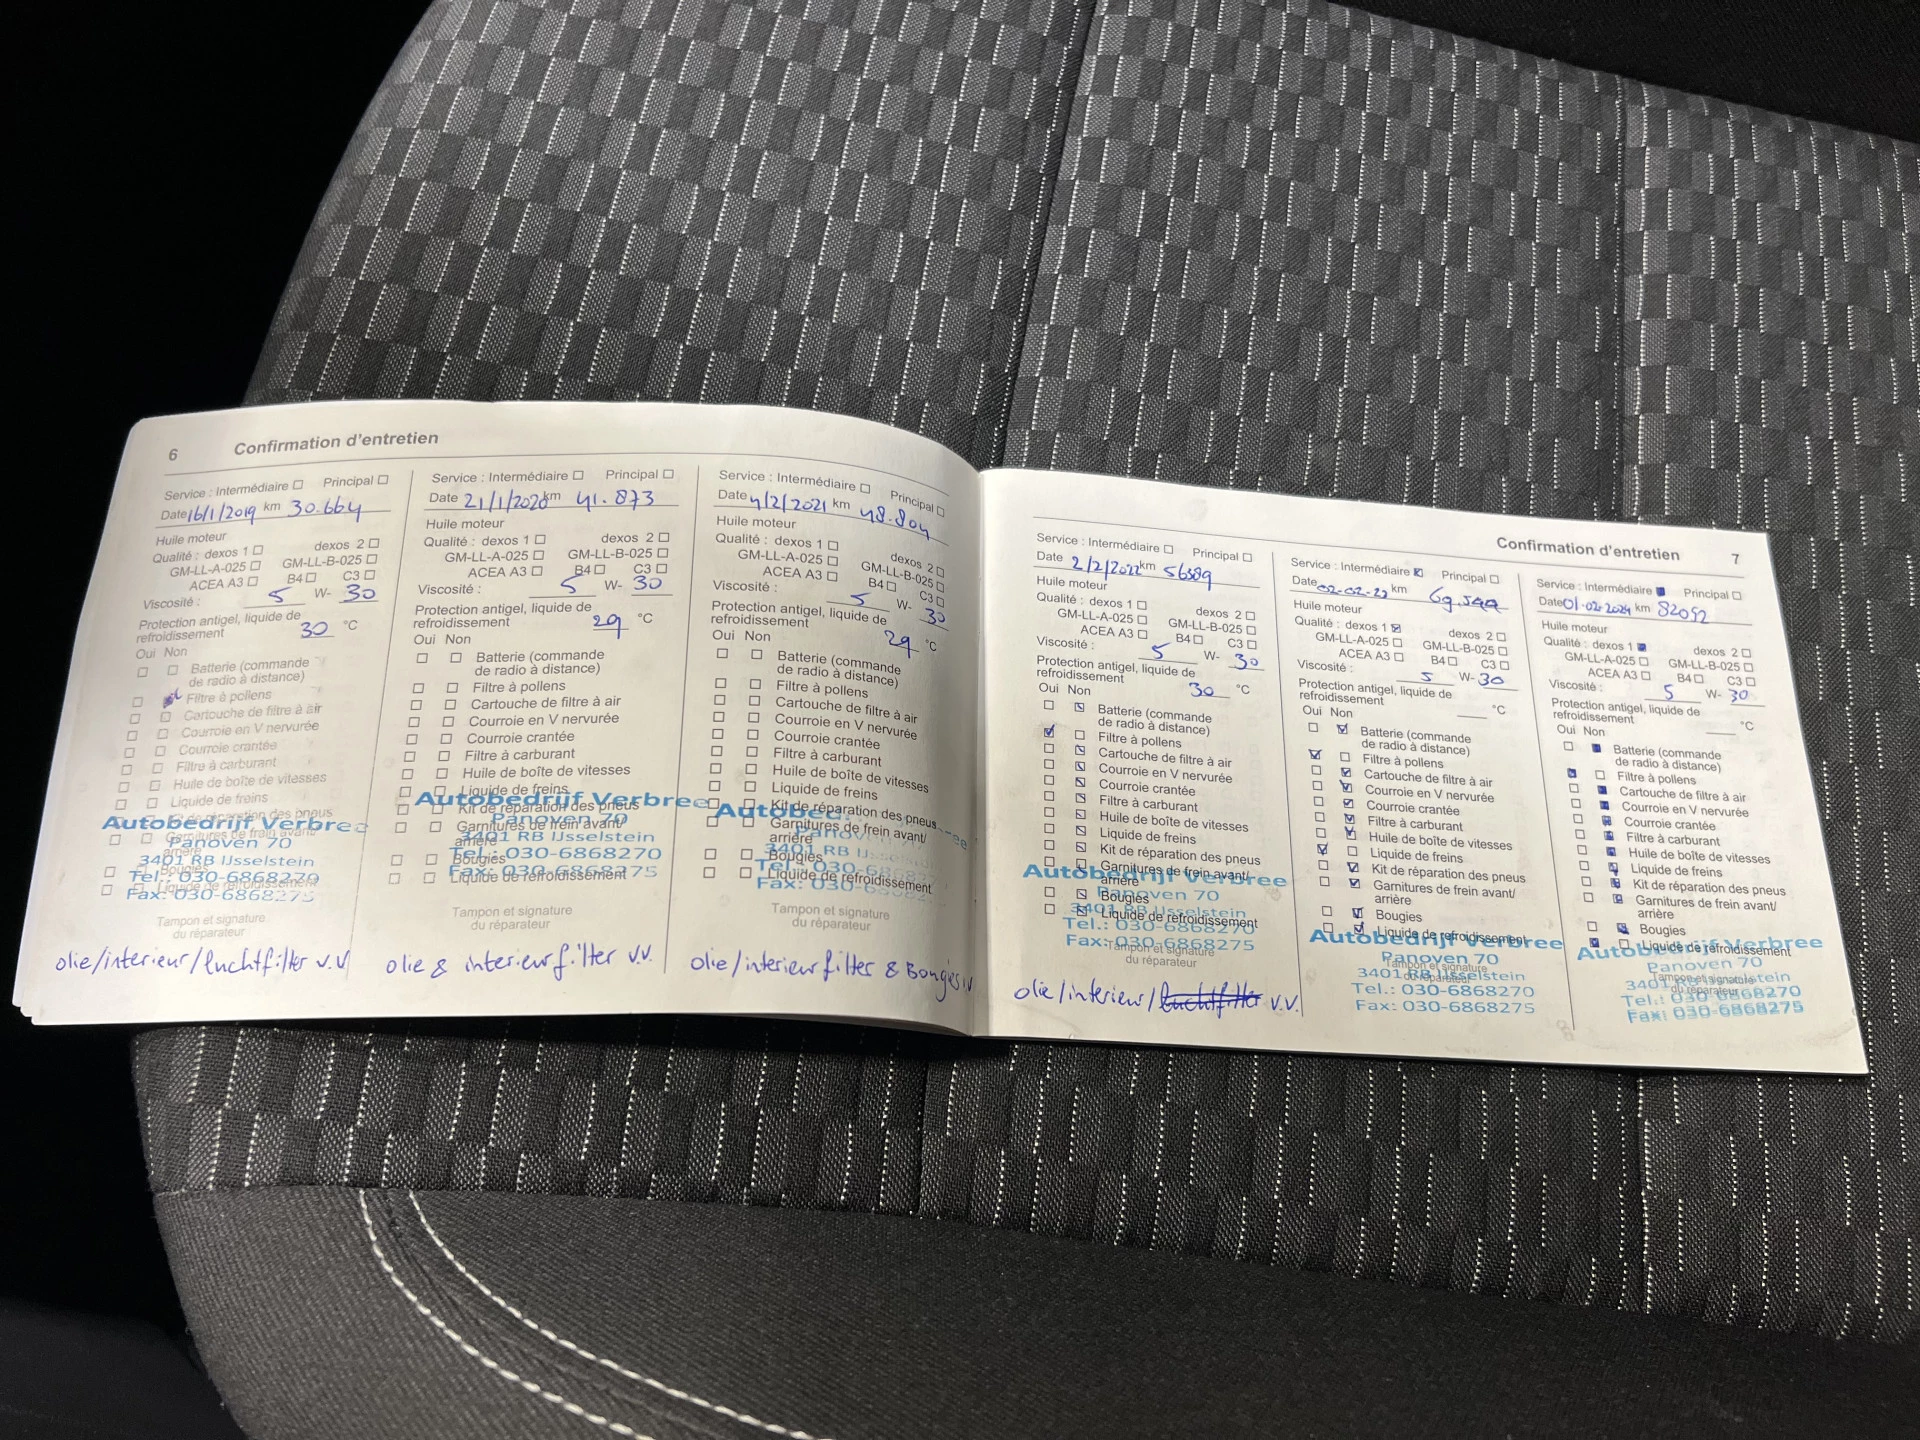 6 Confirmation d'entretien
Service : Intermédiaire ☐ Principal ☐
Date 16/1/2019 km 30.664
Huile moteur
Qualité : dexos 1 ☐ dexos 2 ☐
GM-LL-A-025 ☐ GM-LL-B-025 ☐
ACEA A3 ☐ B4 ☐ C3 ☐
Viscosité : 5 W- 30
Protection antigel, liquide de
refroidissement 30 °C
Oui Non
☐ ☐ Batterie (commande
de radio à distance)
☐ Filtre à pollens
☐ ☐ Cartouche de filtre à air
☐ ☐ Courroie en V nervurée
☐ ☐ Courroie crantée
☐ ☐ Filtre à carburant
☐ ☐ Huile de boîte de vitesses
☐ ☐ Liquide de freins
☐ ☐ Kit de réparation des pneus
☐ ☐ Garnitures de frein avant/
arrière
☐ ☐ Bougies
☐ ☐ Liquide de refroidissement
Autobedrijf Verbree
Panoven 70
3401 RB IJsselstein
Tel.: 030-6868270
Fax: 030-6868275
Tampon et signature
du réparateur
olie/interieur/luchtfilter v.v
Service : Intermédiaire ☐ Principal ☐
Date 21/1/2020 km 41.873
Huile moteur
Qualité : dexos 1 ☐ dexos 2 ☐
GM-LL-A-025 ☐ GM-LL-B-025 ☐
ACEA A3 ☐ B4 ☐ C3 ☐
Viscosité : 5 W- 30
Protection antigel, liquide de
refroidissement 29 °C
Oui Non
☐ ☐ Batterie (commande
de radio à distance)
☐ ☐ Filtre à pollens
☐ ☐ Cartouche de filtre à air
☐ ☐ Courroie en V nervurée
☐ ☐ Courroie crantée
☐ ☐ Filtre à carburant
☐ ☐ Huile de boîte de vitesses
☐ ☐ Liquide de freins
☐ ☐ Kit de réparation des pneus
☐ ☐ Garnitures de frein avant/
arrière
☐ ☐ Bougies
☐ ☐ Liquide de refroidissement
Autobedrijf Verbree
Panoven 70
3401 RB IJsselstein
Tel.: 030-6868270
Fax: 030-6868275
Tampon et signature
du réparateur
olie & interieurfilter v.v.
Service : Intermédiaire ☐ Principal ☐
Date 4/2/2021 km 48.804
Huile moteur
Qualité : dexos 1 ☐ dexos 2 ☐
GM-LL-A-025 ☐ GM-LL-B-025 ☐
ACEA A3 ☐ B4 ☐ C3 ☐
Viscosité : 5 W- 30
Protection antigel, liquide de
refroidissement 29 °C
Oui Non
☐ ☐ Batterie (commande
de radio à distance)
☐ ☐ Filtre à pollens
☐ ☐ Cartouche de filtre à air
☐ ☐ Courroie en V nervurée
☐ ☐ Courroie crantée
☐ ☐ Filtre à carburant
☐ ☐ Huile de boîte de vitesses
☐ ☐ Liquide de freins
☐ ☐ Kit de réparation des pneus
☐ ☐ Garnitures de frein avant/
arrière
☐ ☐ Bougies
☐ ☐ Liquide de refroidissement
3401 RB
Tel.: 030
Fax: 030-
Tampon et signature
du réparateur
olie/interieurfilter & Bougies
Confirmation d'entretien 7
Service : Intermédiaire ☐ Principal ☐
Date 2/2/2022 km 56589
Huile moteur
Qualité : dexos 1 ☐ dexos 2 ☐
GM-LL-A-025 ☐ GM-LL-B-025 ☐
ACEA A3 ☐ B4 ☐ C3 ☐
Viscosité : 5 W- 30
Protection antigel, liquide de
refroidissement 30 °C
Oui Non
☐ ☑ Batterie (commande
de radio à distance)
☑ ☐ Filtre à pollens
☐ ☑ Cartouche de filtre à air
☐ ☑ Courroie en V nervurée
☐ ☑ Courroie crantée
☐ ☑ Filtre à carburant
☐ ☑ Huile de boîte de vitesses
☐ ☑ Liquide de freins
☐ ☑ Kit de réparation des pneus
☐ ☑ Garnitures de frein avant/
arrière
☐ ☑ Bougies
☐ ☑ Liquide de refroidissement
Autobedrijf Verbree
Panoven 70
3401 RB IJsselstein
Tel.: 030-6868270
Fax: 030-6868275
Tampon et signature
du réparateur
olie/interieur/luchtfilter v.v.
Service : Intermédiaire ☑ Principal ☐
Date 02-02-23 km
Huile moteur
Qualité : dexos 1 ☑ dexos 2 ☐
GM-LL-A-025 ☐ GM-LL-B-025 ☐
ACEA A3 ☐ B4 ☐ C3 ☐
Viscosité : 5 W- 30
Protection antigel, liquide de
refroidissement °C
Oui Non
☐ ☑ Batterie (commande
de radio à distance)
☑ ☐ Filtre à pollens
☐ ☑ Cartouche de filtre à air
☐ ☑ Courroie en V nervurée
☐ ☑ Courroie crantée
☐ ☑ Filtre à carburant
☐ ☑ Huile de boîte de vitesses
☑ ☐ Liquide de freins
☐ ☑ Kit de réparation des pneus
☐ ☑ Garnitures de frein avant/
arrière
☐ ☑ Bougies
☐ ☑ Liquide de refroidissement
Autobedrijf Verbree
Panoven 70
3401 RB IJsselstein
Tel.: 030-6868270
Fax: 030-6868275
Tampon et signature
du réparateur
Service : Intermédiaire ☑ Principal ☐
Date 01-02-2024 km 82092
Huile moteur
Qualité : dexos 1 ☑ dexos 2 ☐
GM-LL-A-025 ☐ GM-LL-B-025 ☐
ACEA A3 ☐ B4 ☐ C3 ☐
Viscosité : 5 W- 30
Protection antigel, liquide de
refroidissement °C
Oui Non
☐ ☑ Batterie (commande
de radio à distance)
☑ ☐ Filtre à pollens
☐ ☑ Cartouche de filtre à air
☐ ☑ Courroie en V nervurée
☐ ☑ Courroie crantée
☐ ☑ Filtre à carburant
☐ ☑ Huile de boîte de vitesses
☐ ☑ Liquide de freins
☐ ☑ Kit de réparation des pneus
☐ ☑ Garnitures de frein avant/
arrière
☐ ☑ Bougies
☑ ☐ Liquide de refroidissement
Autobedrijf Verbree
Panoven 70
3401 RB IJsselstein
Tel.: 030-6868270
Fax: 030-6868275
Tampon et signature
du réparateur